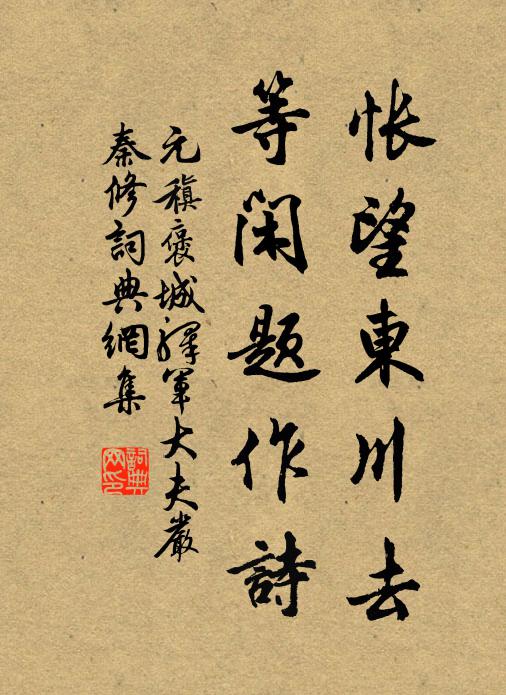 悵望東川去
等閑題作詩
元稹褒城驛軍大夫嚴
秦修詞典網集
詞典网印